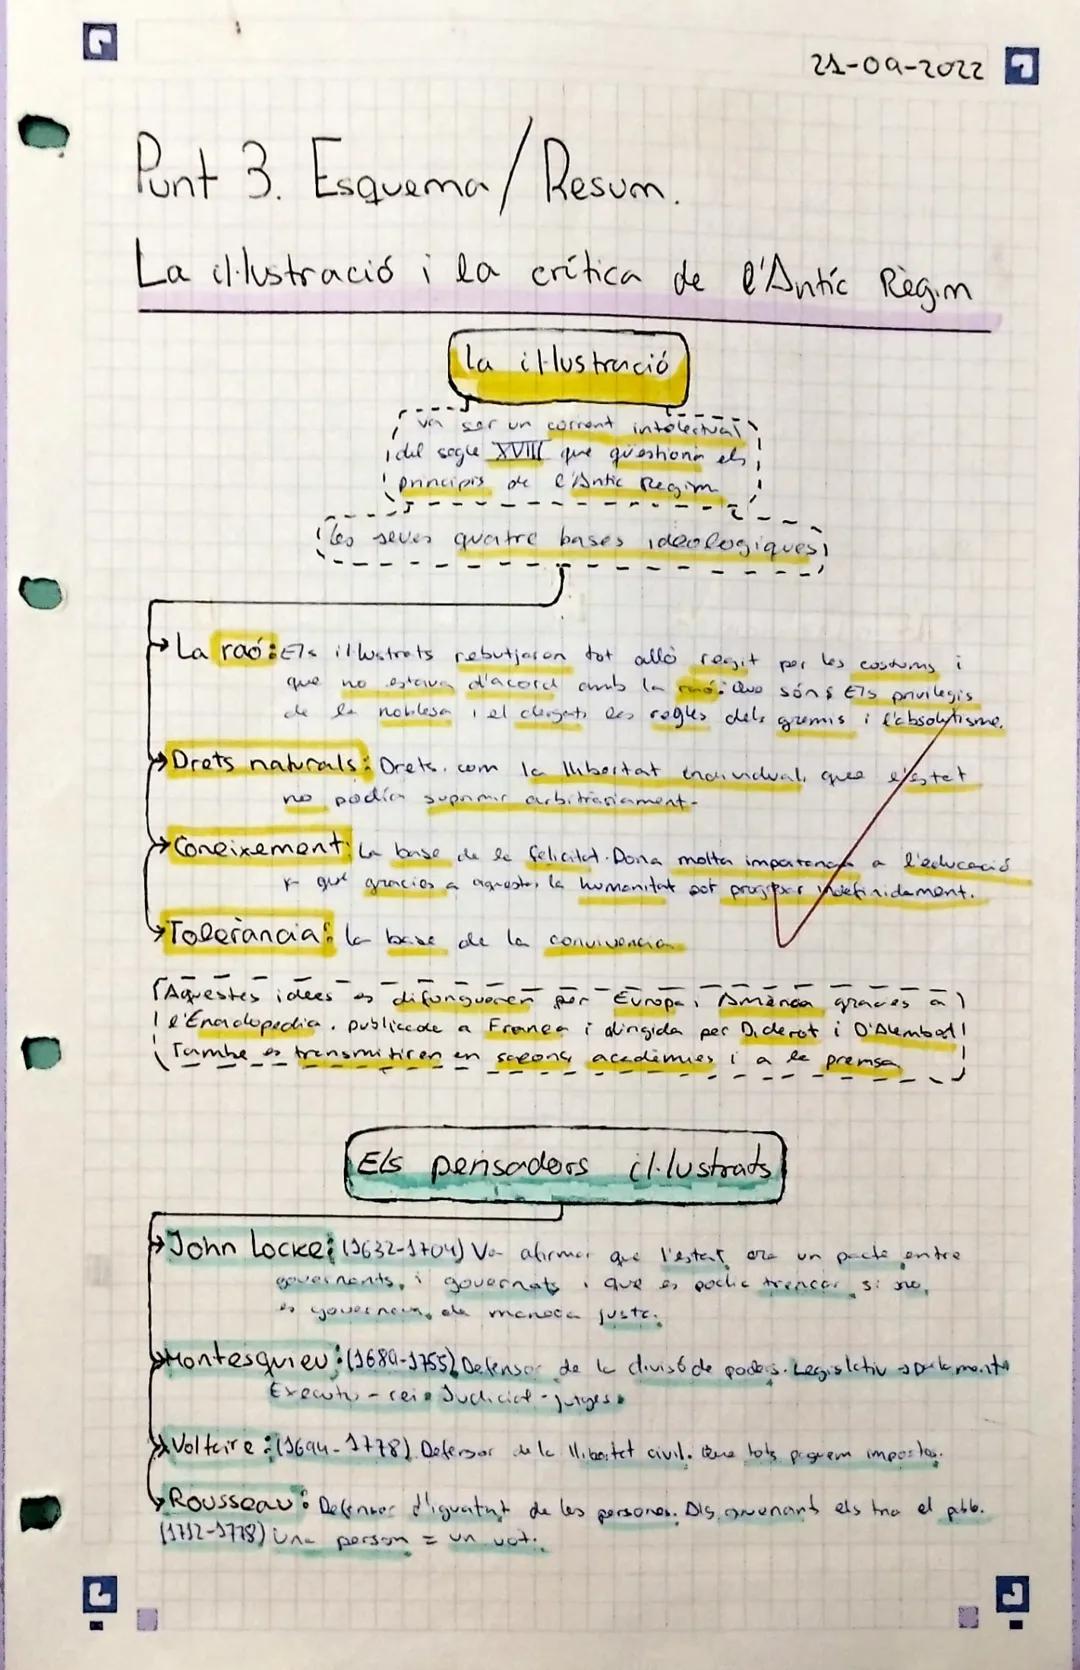 21-09-2022
Punt 3. Esquema/Resum.
La il·lustració i la crítica de l'Antic Règim
La il·lustració
va ser un corrent intelectual
del segle XVIII que qüestiona els
principis de l'Antic Regim
les seves quatre bases ideologiques
La raó: Els il·lustrats rebutjaren tot allò regit per les costums i
que no estava d'acord amb la raó. Que són: Els privilegis
de la noblesa i el clergat, les regles dels gremis i l'absolutisme.
Drets naturals: Drets, com la llibertat individual, que l'estat
no podia suprimir arbitrariament.
Coneixement: La base de la felicitat. Dona molta importancia a l'educació
que gracies a aquesta, la humanitat pot progresar indefinidament.
Toleràncïa: la base de la convivencia
Aquestes idees es difongueren per Europa i Amèrica gracies a
l'Enciclopedia, publicada a França i dirigida per Diderot i D'Alembert
Tambe es transmitiren en salons, acadèmies i a la premsa
Els pensadors il·lustrats
John Locke: (1632-1704) Va afirmar que l'estat era un pacte entre
governants i governats i que es podia trencar si no
es governava de manera justa.
Montesquieu: (1689-1755) Defensor de la divisó de poders. Legislatiu → Parlament
Executiu - rei. Judicial - jutges.
Voltaire: (1694-1778) Defensor de la llibertat civil. Que tots paguem impostos.
Rousseau: Defensor d'igualtat de les persones. Els governants els tria el pble.
(1712-1778) Una person = un vot.